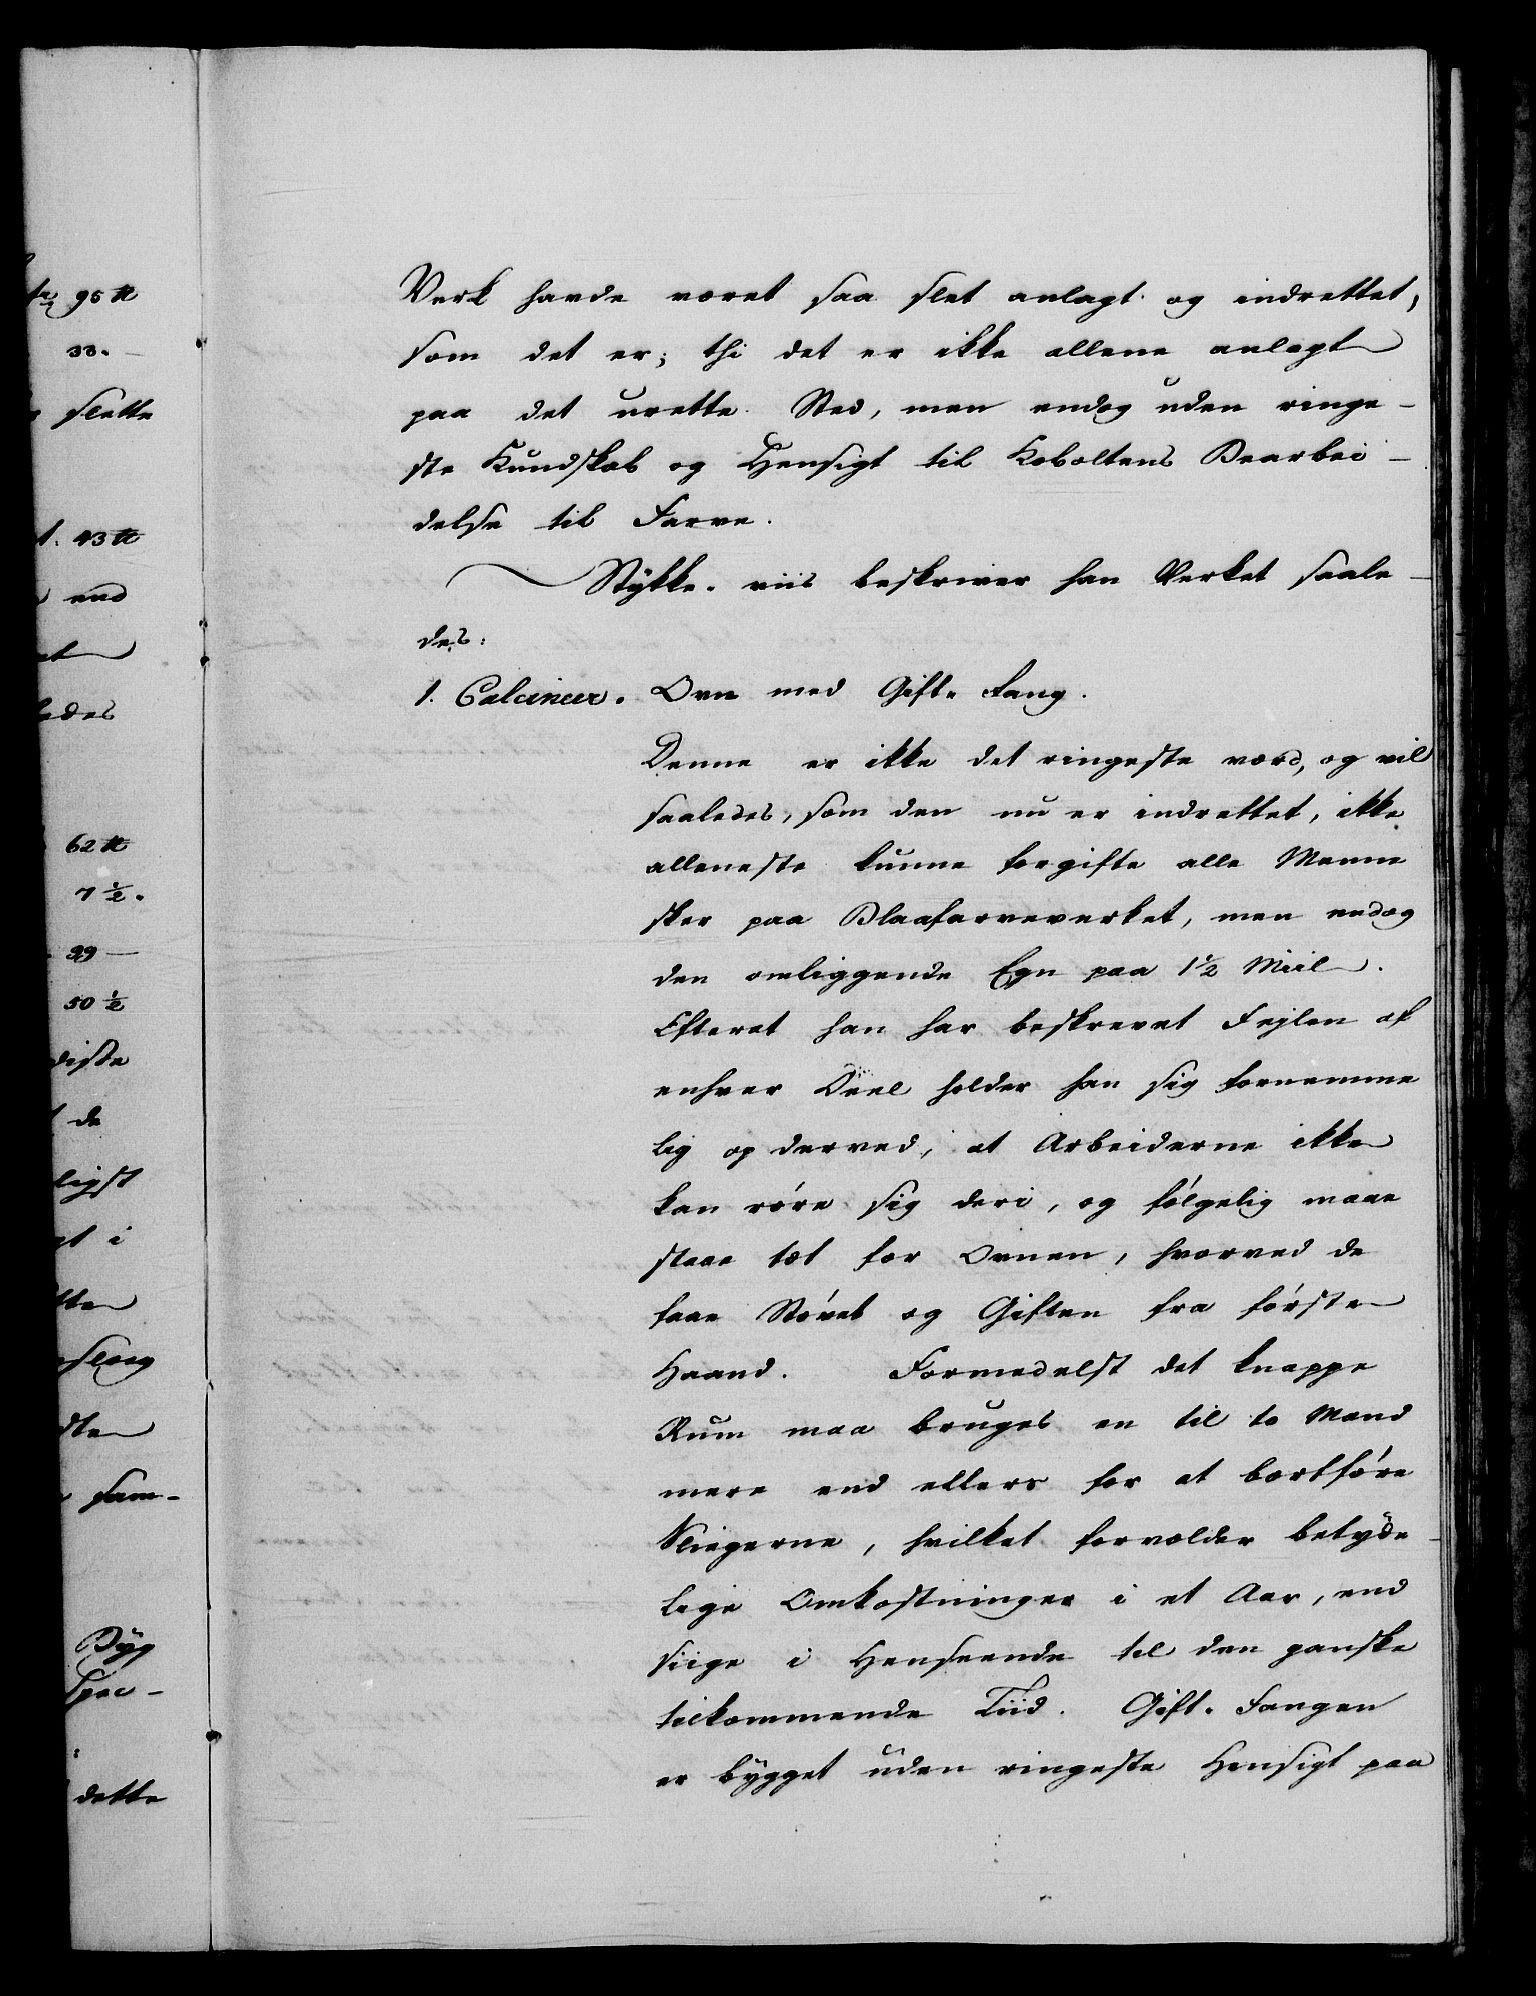 Verk havde været saa slet anlagt og indrettet,
som det er; thi det er ikke allene anlagt
paa det urette Sted, men endog uden ringe-
ste Kundskab og Hensigt til Koboltens Bearbei-
delse til Farve.
Stykke-viis beskriver han Verket saale-
des:
1. Calcineer-Ovn med Gift-Fang.
Denne er ikke det ringeste værd, og vil
saaledes, som den nu er indrettet, ikke
alleneste kunne forgifte alle Menne
sker paa Blaafarveverket, men endog
den omliggende Egn paa 1½ Miil.
Efterat han har beskrevet Fejlen af
enhver Deel holder han sig fornemme
lig op derved, at Arbeiderne ikke
kan røre sig deri, og følgelig maae
staae tæt for Ovnen, hvorved de
faae Støvet og Giften fra første
Haand. Formedelst det knappe
Rum maa bruges en til to Mand
mere end ellers for at bortføre
Sliegerne, hvilket forvolder betyde-
lige Omkostninger i et Aar, end
siige i Henseende til den ganske
tilkommende Tiid. Gift-Fangen
er bygget uden ringeste Hensigt paa
95 ℔
33.
slette
43 ℔
end
ledes
62 ℔
7½.
99
50½
diste
de
ligst
i
sam-
Byg
dette